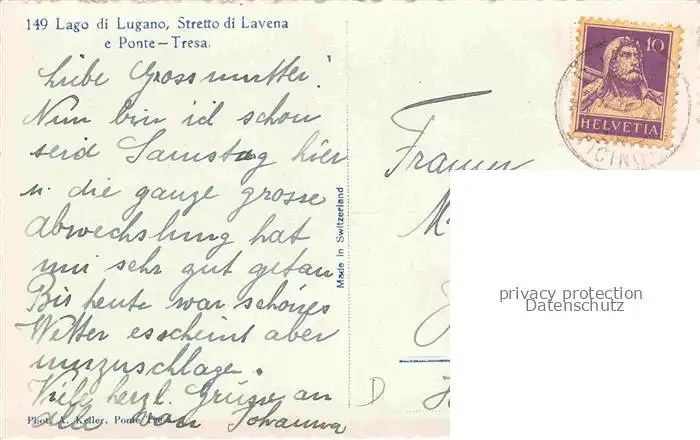 149 Lago di Lugano, Stretto di Lavena
e Ponte-Tresa.
Liebe Grossmutter!
Nun bin id schon
seid Samstag hier
u. die ganze grosse
Abwechslung hat
mir sehr gut getan
Bis heute war schönes
Wetter esscheint aber
umzuschlage.
Viele herzl. Grüsse an
alle von Johanna
Phot. A. Keller, Ponte Tresa
Made in Switzerland
10
HELVETIA
TICINO
Frauen
M
D
privacy protection
Datenschutz